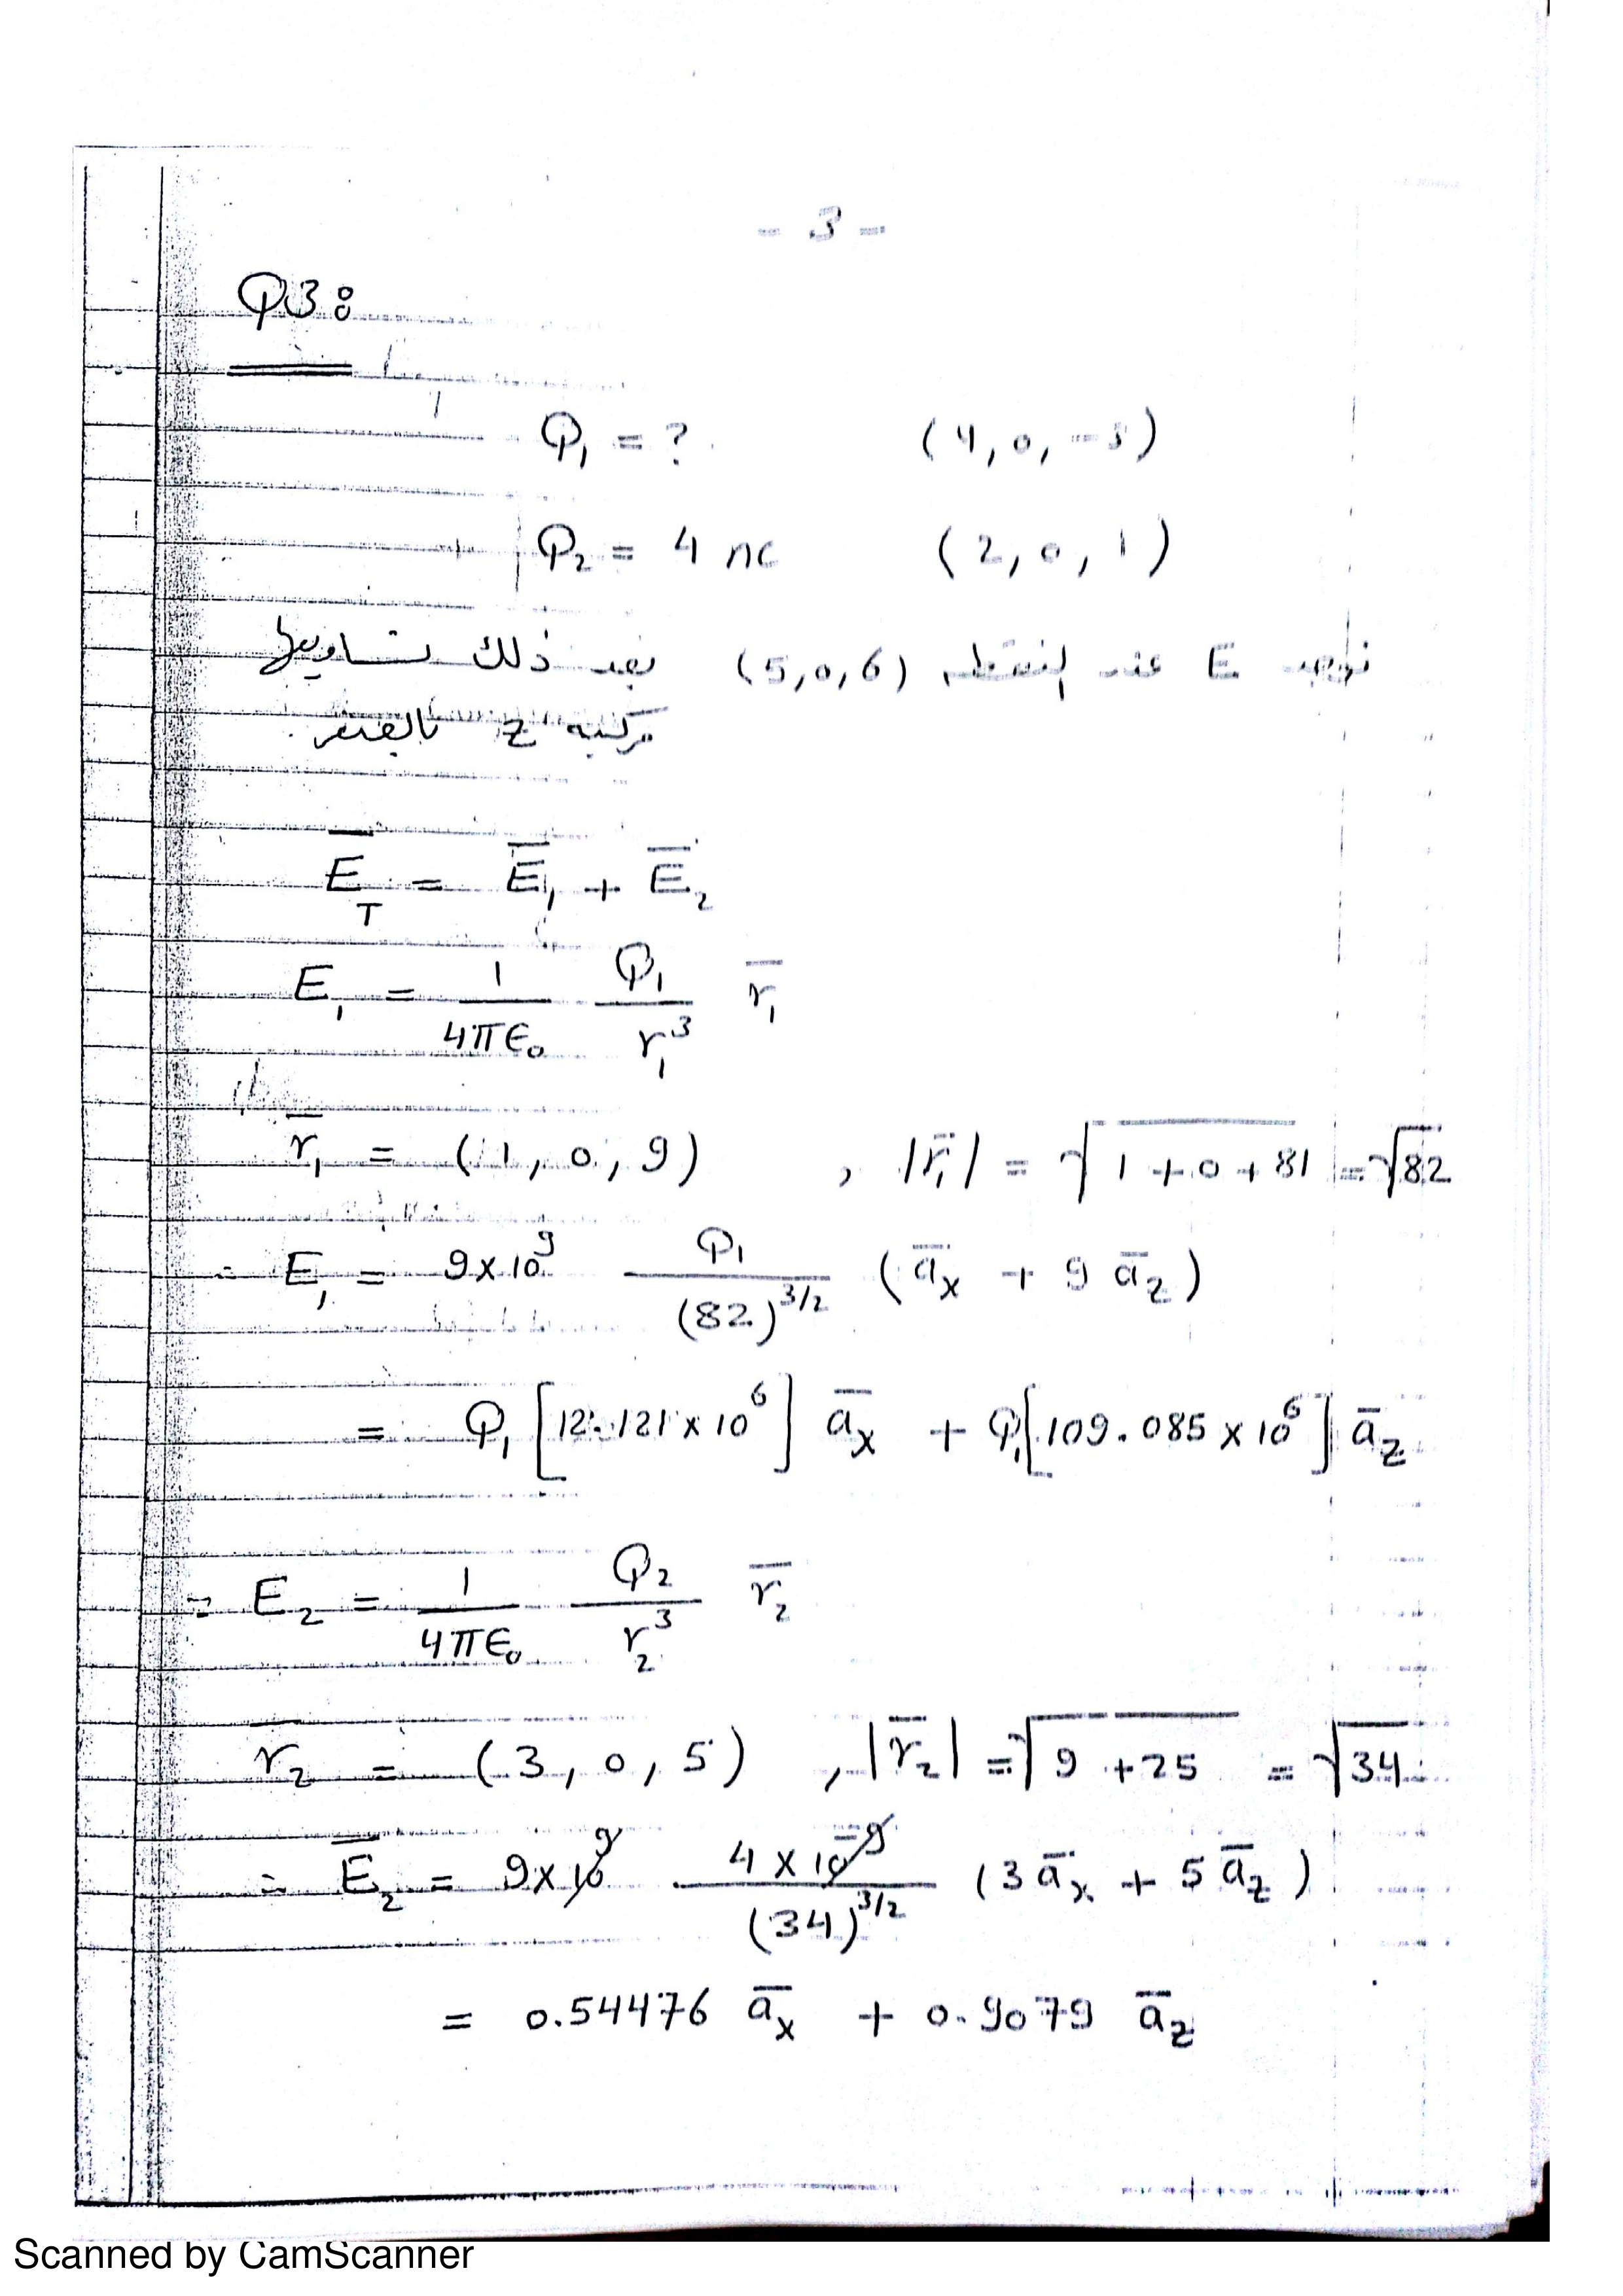 - 3 -
Q3:
Q₁ = ? (4, 0, -3)
Q₂ = 4 nc (2, 0, 1)
نوجد E عند النقطه (5,0,6) بعد ذلك نساويها
مركبه z بالصفر
E̅_T = E̅₁ + E̅₂
E₁ = 1/(4πϵ₀) Q₁/r₁³ r̅₁
r̅₁ = (1, 0, 9) , |r̅₁| = √(1+0+81) = √82
∴ E₁ = 9×10⁹ Q₁/(82)^(3/2) (a̅ₓ + 9 a̅_z)
= Q₁ [12.121×10⁶] a̅ₓ + Q₁[109.085×10⁶] a̅_z
∴ E₂ = 1/(4πϵ₀) Q₂/r₂³ r̅₂
r̅₂ = (3, 0, 5) , |r̅₂| = √(9+25) = √34
∴ E̅₂ = 9×10⁹ (4×10⁻⁹)/(34)^(3/2) (3a̅ₓ + 5a̅_z)
= 0.54476 a̅ₓ + 0.9079 a̅_z
Scanned by CamScanner